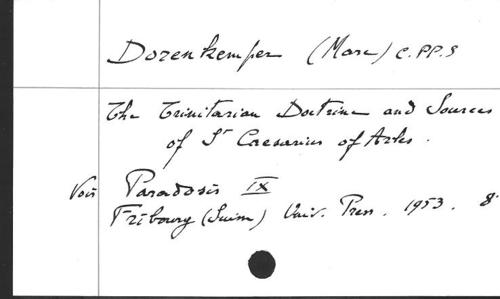 Dorenkemper (Marc) C.PP.S
The Trinitarian Doctrine and Sources
of St Caesarius of Arles.
Voir Paradosis IX
Fribourg (Suisse) Univ. Press. 1953. 8°